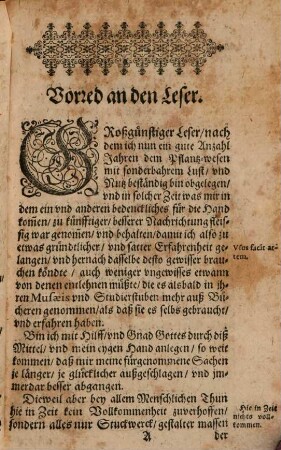 Vorred an den Leser.
GRoßgünstiger Leser/nach
dem ich nun ein gute Anzahl
Jahren dem Pflantz-wesen
mit sonderbahrem Lust/ vnd
Nutz beständig bin obgelegen/
vnd in solcher Zeit was mir in
dem ein vnd anderen bedenckliches für die Hand
kom̃en/ zu künfftiger/ besserer Nachrichtung fleis-
sig war genom̃en/ vnd behalten/ damit ich also zu
etwas gründtlicher/ vnd satter Erfahrenheit ge-
langen/ vnd hernach dasselbe desto gewisser brau-
chen köndte / auch weniger vngewisses etwann
von denen entlehnen müßte/ die es als bald in ih-
ren Musæis vnd Studierstuben mehr auß Bü-
cheren genommen/ als daß sie es selbs gebraucht/
vnd erfahren haben.
Vsus facit ar-
tem.
Bin ich mit Hilff/ vnd Gnad Gottes durch diß
Mittel/ vnd mein eygen Hand anlegen/ so weit
kommen/ daß mir meine fürgenommene Sachen
je länger/ je glücklicher außgeschlagen/ vnd im-
merdar besser abgangen.
Dieweil aber bey allem Menschlichen Thun
hie in Zeit kein Vollkommenheit zuverhoffen/
sondern alles nur Stuckwerck/ gestalter massen
Hie in Zeit
nichts voll-
kommen.
A der